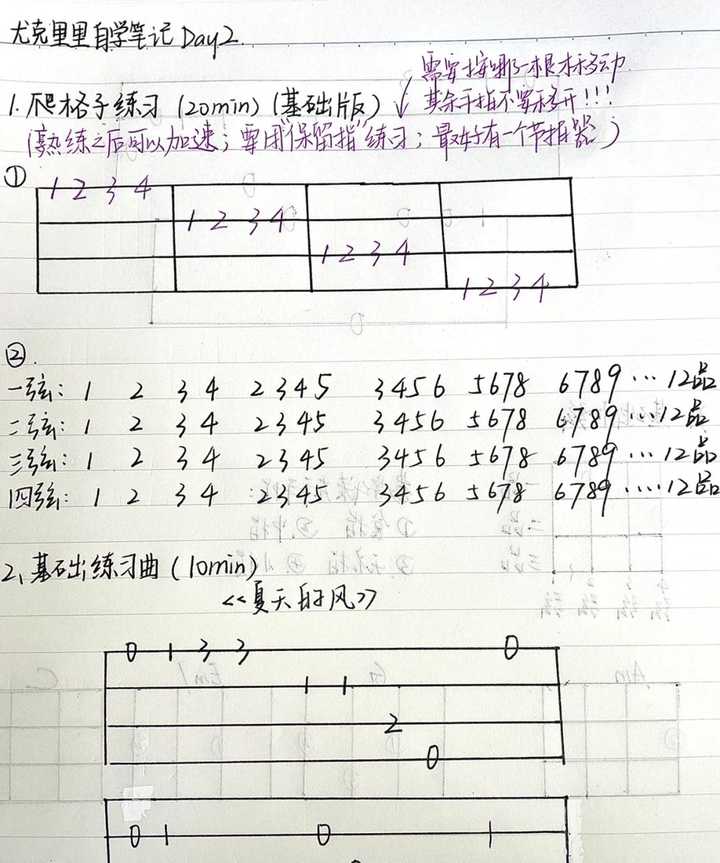 尤克里里自学笔记 Day2.
1. 爬格子练习 (20min) (基础版)
需要按哪一根才移动
其余手指不要移开!!!
(熟练之后可以加速; 要用"保留指"练习; 最好有一个节拍器)
①
1 2 3 4
1 2 3 4
1 2 3 4
1 2 3 4
②.
一弦: 1 2 3 4 2345 3456 5678 6789 ··· 12品
二弦: 1 2 3 4 2345 3456 5678 6789 ··· 12品
三弦: 1 2 3 4 2345 3456 5678 6789 ··· 12品
四弦: 1 2 3 4 2345 3456 5678 6789 ···· 12品
2、基础练习曲 (10min)
<<夏天的风>>
0 1 3 3 0
1 1
2
0
0 1 0 1